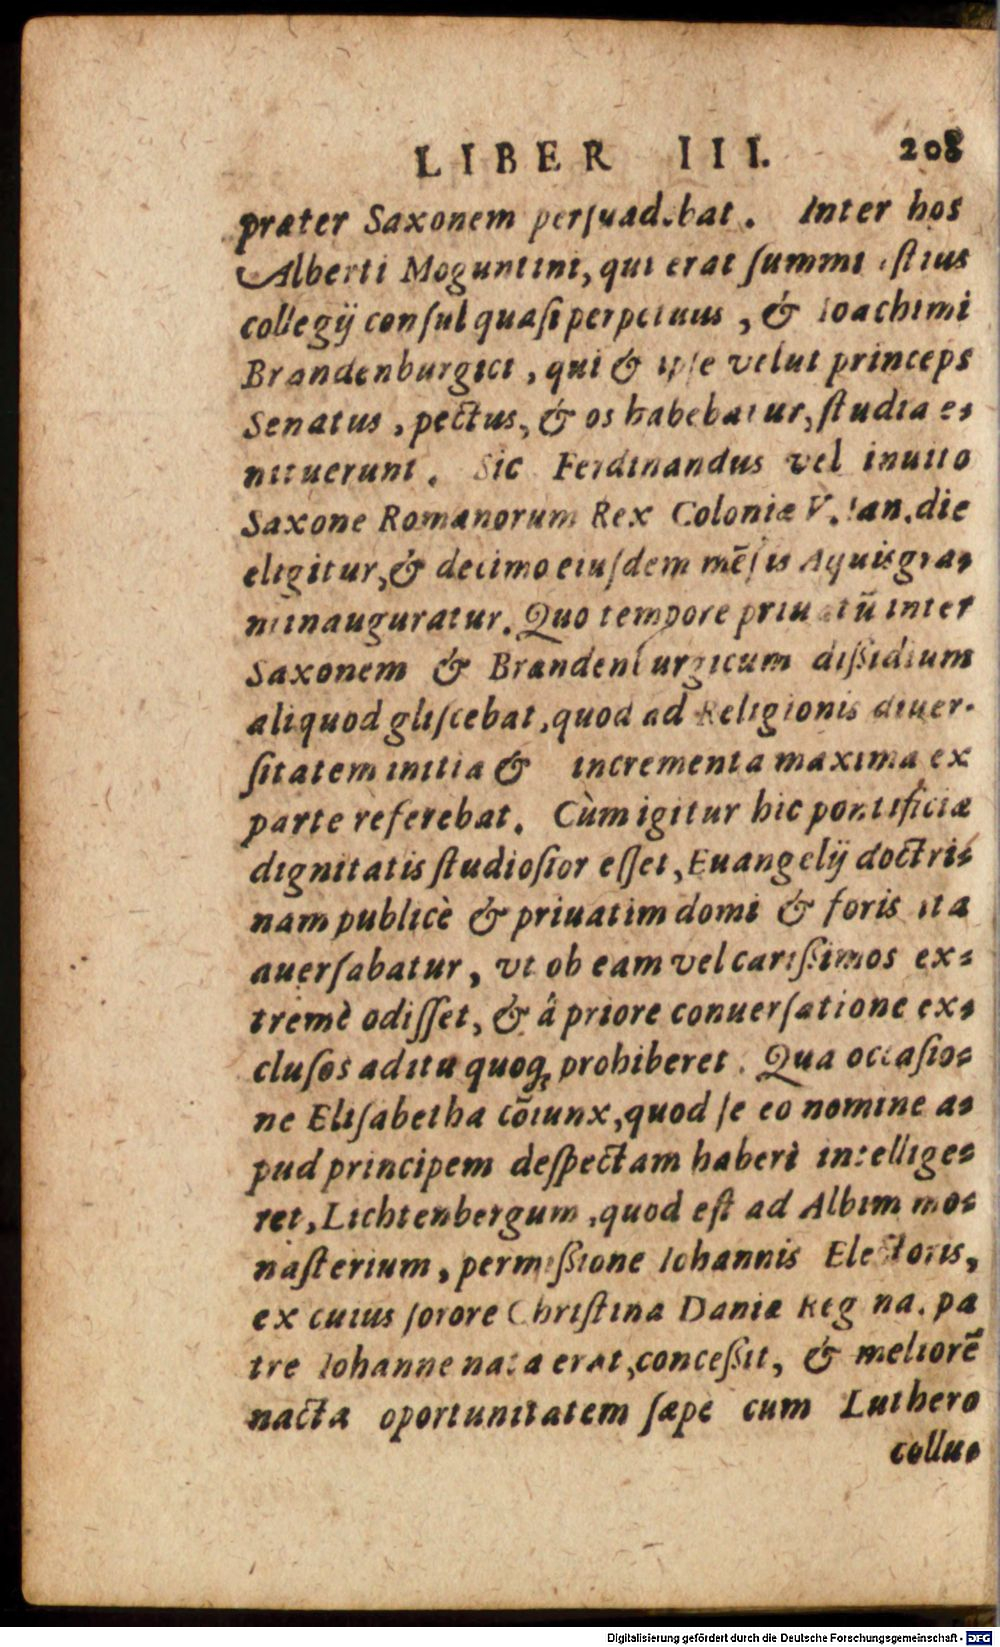 LIBER III. 208
præter Saxonem perſuadebat. Inter hos
Alberti Moguntini, qui erat ſummi iſtius
collegij conſul quaſi perpetuus, & Ioachimi
Brandenburgici, qui & ipſe velut princeps
Senatus, pectus, & os habebatur, ſtudia e-
nituerunt. Sic Ferdinandus vel inuito
Saxone Romanorum Rex Coloniæ V. Ian. die
eligitur, & decimo eiuſdem mẽſis Aquisgra-
ni inauguratur. Quo tempore priuatũ inter
Saxonem & Brandenburgicum diſſidium
aliquod gliſcebat, quod ad Religionis diuer-
ſitatem initia & incrementa maxima ex
parte referebat. Cùm igitur hic pontificiæ
dignitatis ſtudioſior eſſet, Euangelij doctri-
nam publicè & priuatim domi & foris ita
auerſabatur, vt ob eam vel cariſſimos ex-
tremè odiſſet, & â priore conuerſatione ex-
cluſos aditu quoq; prohiberet. Qua occaſio-
ne Eliſabetha cõiunx, quod ſe eo nomine a-
pud principem deſpectam haberi intellige-
ret, Lichtenbergum, quod eſt ad Albim mo-
naſterium, permiſſione Iohannis Electoris,
ex cuius ſorore Chriſtina Daniæ Regina. pa
tre Iohanne nata erat, conceſſit, & meliorẽ
nacta oportunitatem ſæpe cum Luthero
collue
Digitalisierung gefördert durch die Deutsche Forschungsgemeinschaft - DFG